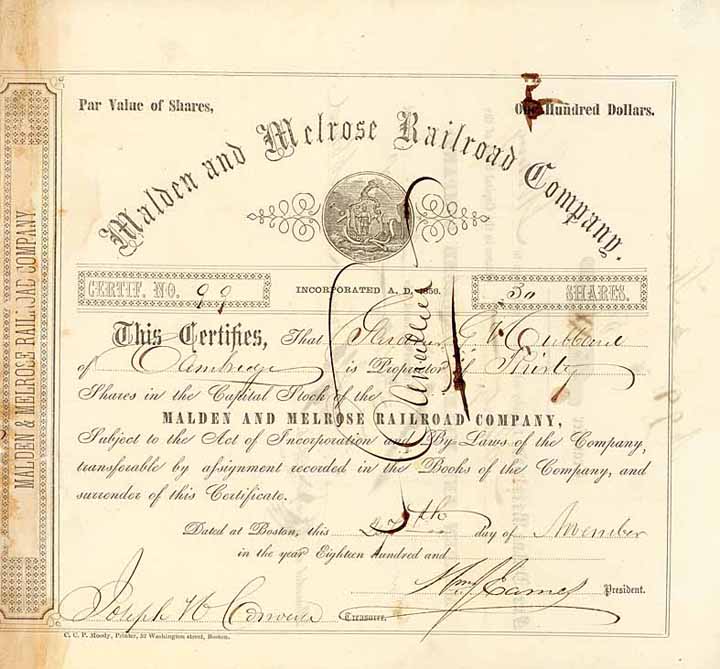 Par Value of Shares, One Hundred Dollars.
Malden and Melrose Railroad Company.
CERTIF. NO. 99 INCORPORATED A. D. 1856. 30 SHARES.
This Certifies, That Gardiner G. Hubbard
of Cambridge is Proprietor of Thirty
Shares in the Capital Stock of the
MALDEN AND MELROSE RAILROAD COMPANY,
Subject to the Act of Incorporation and By-Laws of the Company,
transferable by assignment recorded in the Books of the Company, and
surrender of this Certificate.
Dated at Boston, this 27th day of November
in the year Eighteen Hundred and
Wm. Eames President.
Joseph W Converse Treasurer.
C. C. P. Moody, Printer, 52 Washington street, Boston.
MALDEN & MELROSE RAILROAD COMPANY
Cancelled